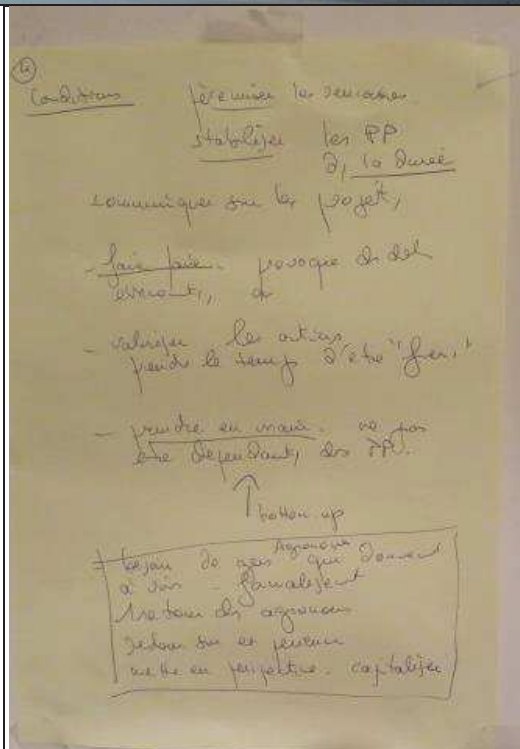 4
Conditions pérenniser les
stabiliser les PP
ds la durée
communiquer sur les projets,
- faire faire. provoque des
- valoriser les actions
prendre le temps d'être "fiers"
- prendre en main. ne pas
être dépendants des PP.
bottom up
= besoin de gens Agronomes qui donnent
à voir - formalisent
retour des agronomes
retour sur
mettre en perspective. capitaliser